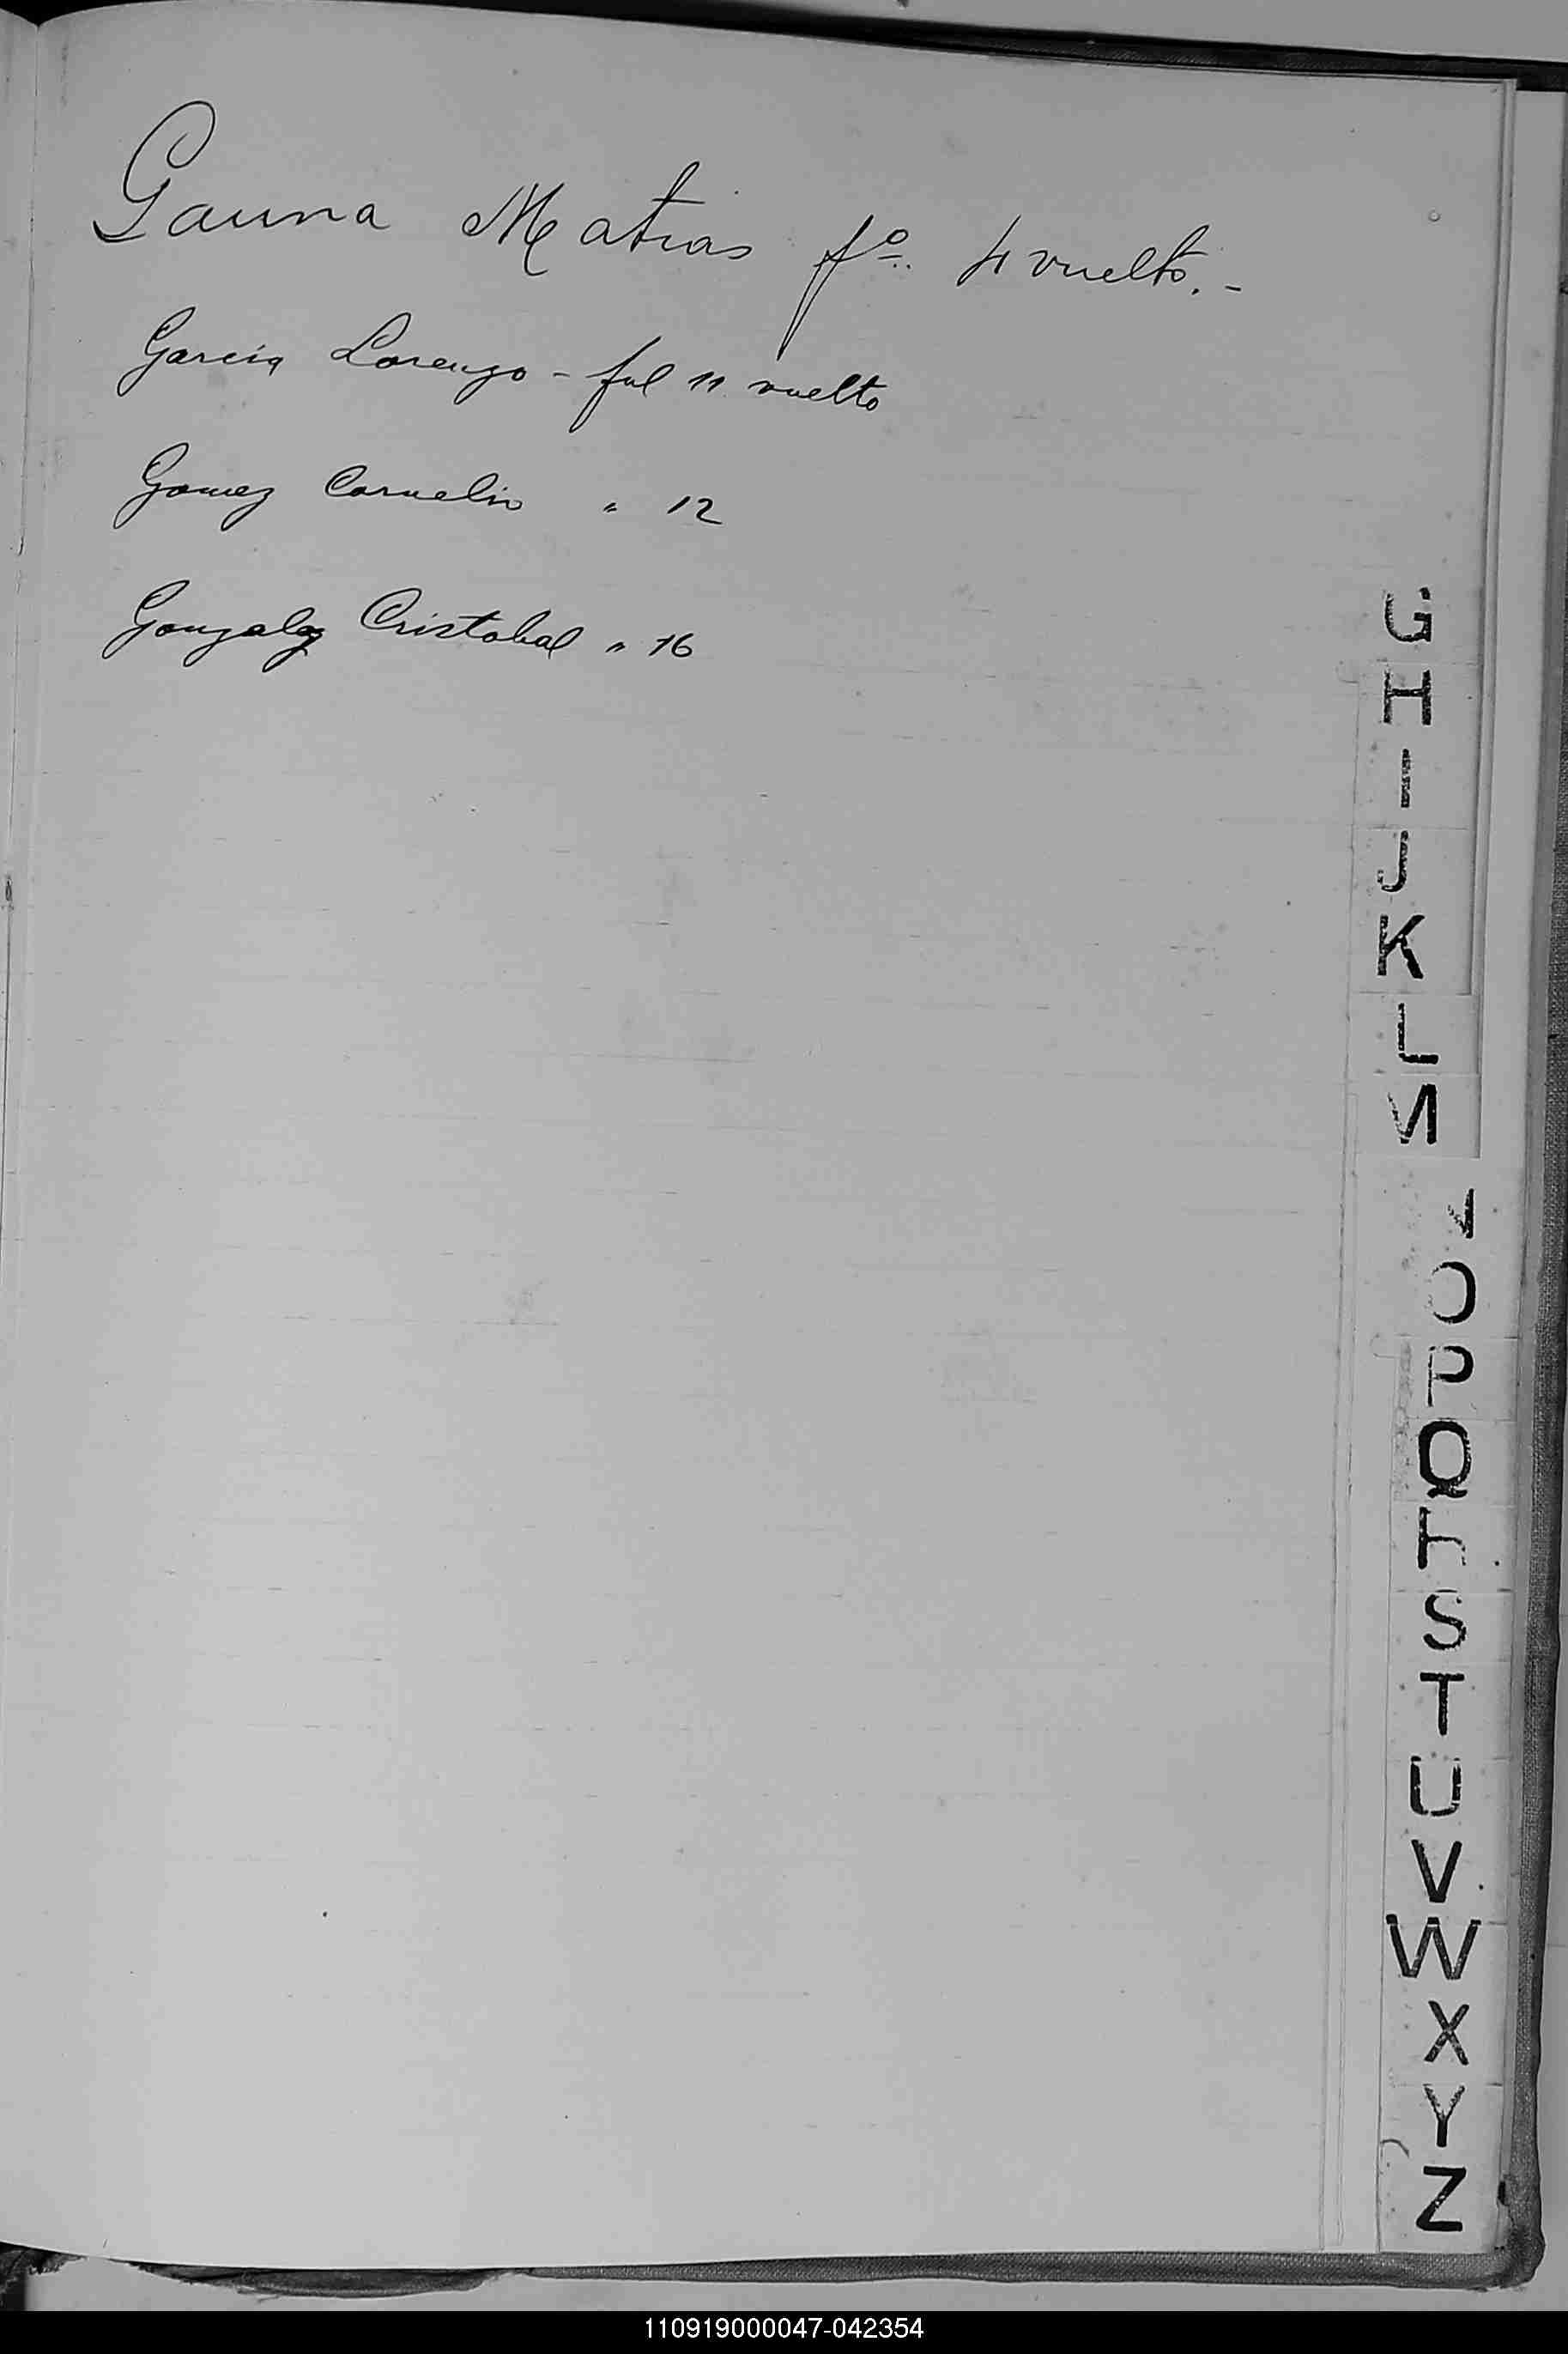 Gauna Matias fº 4 vuelto.-
Garcia Lorenzo - fol 11 vuelto
Gomez Cornelio " 12
Gonzalez Cristobal " 16
G
H
I
J
K
L
M
N
O
P
Q
R
S
T
U
V
W
X
Y
Z
110919000047-042354